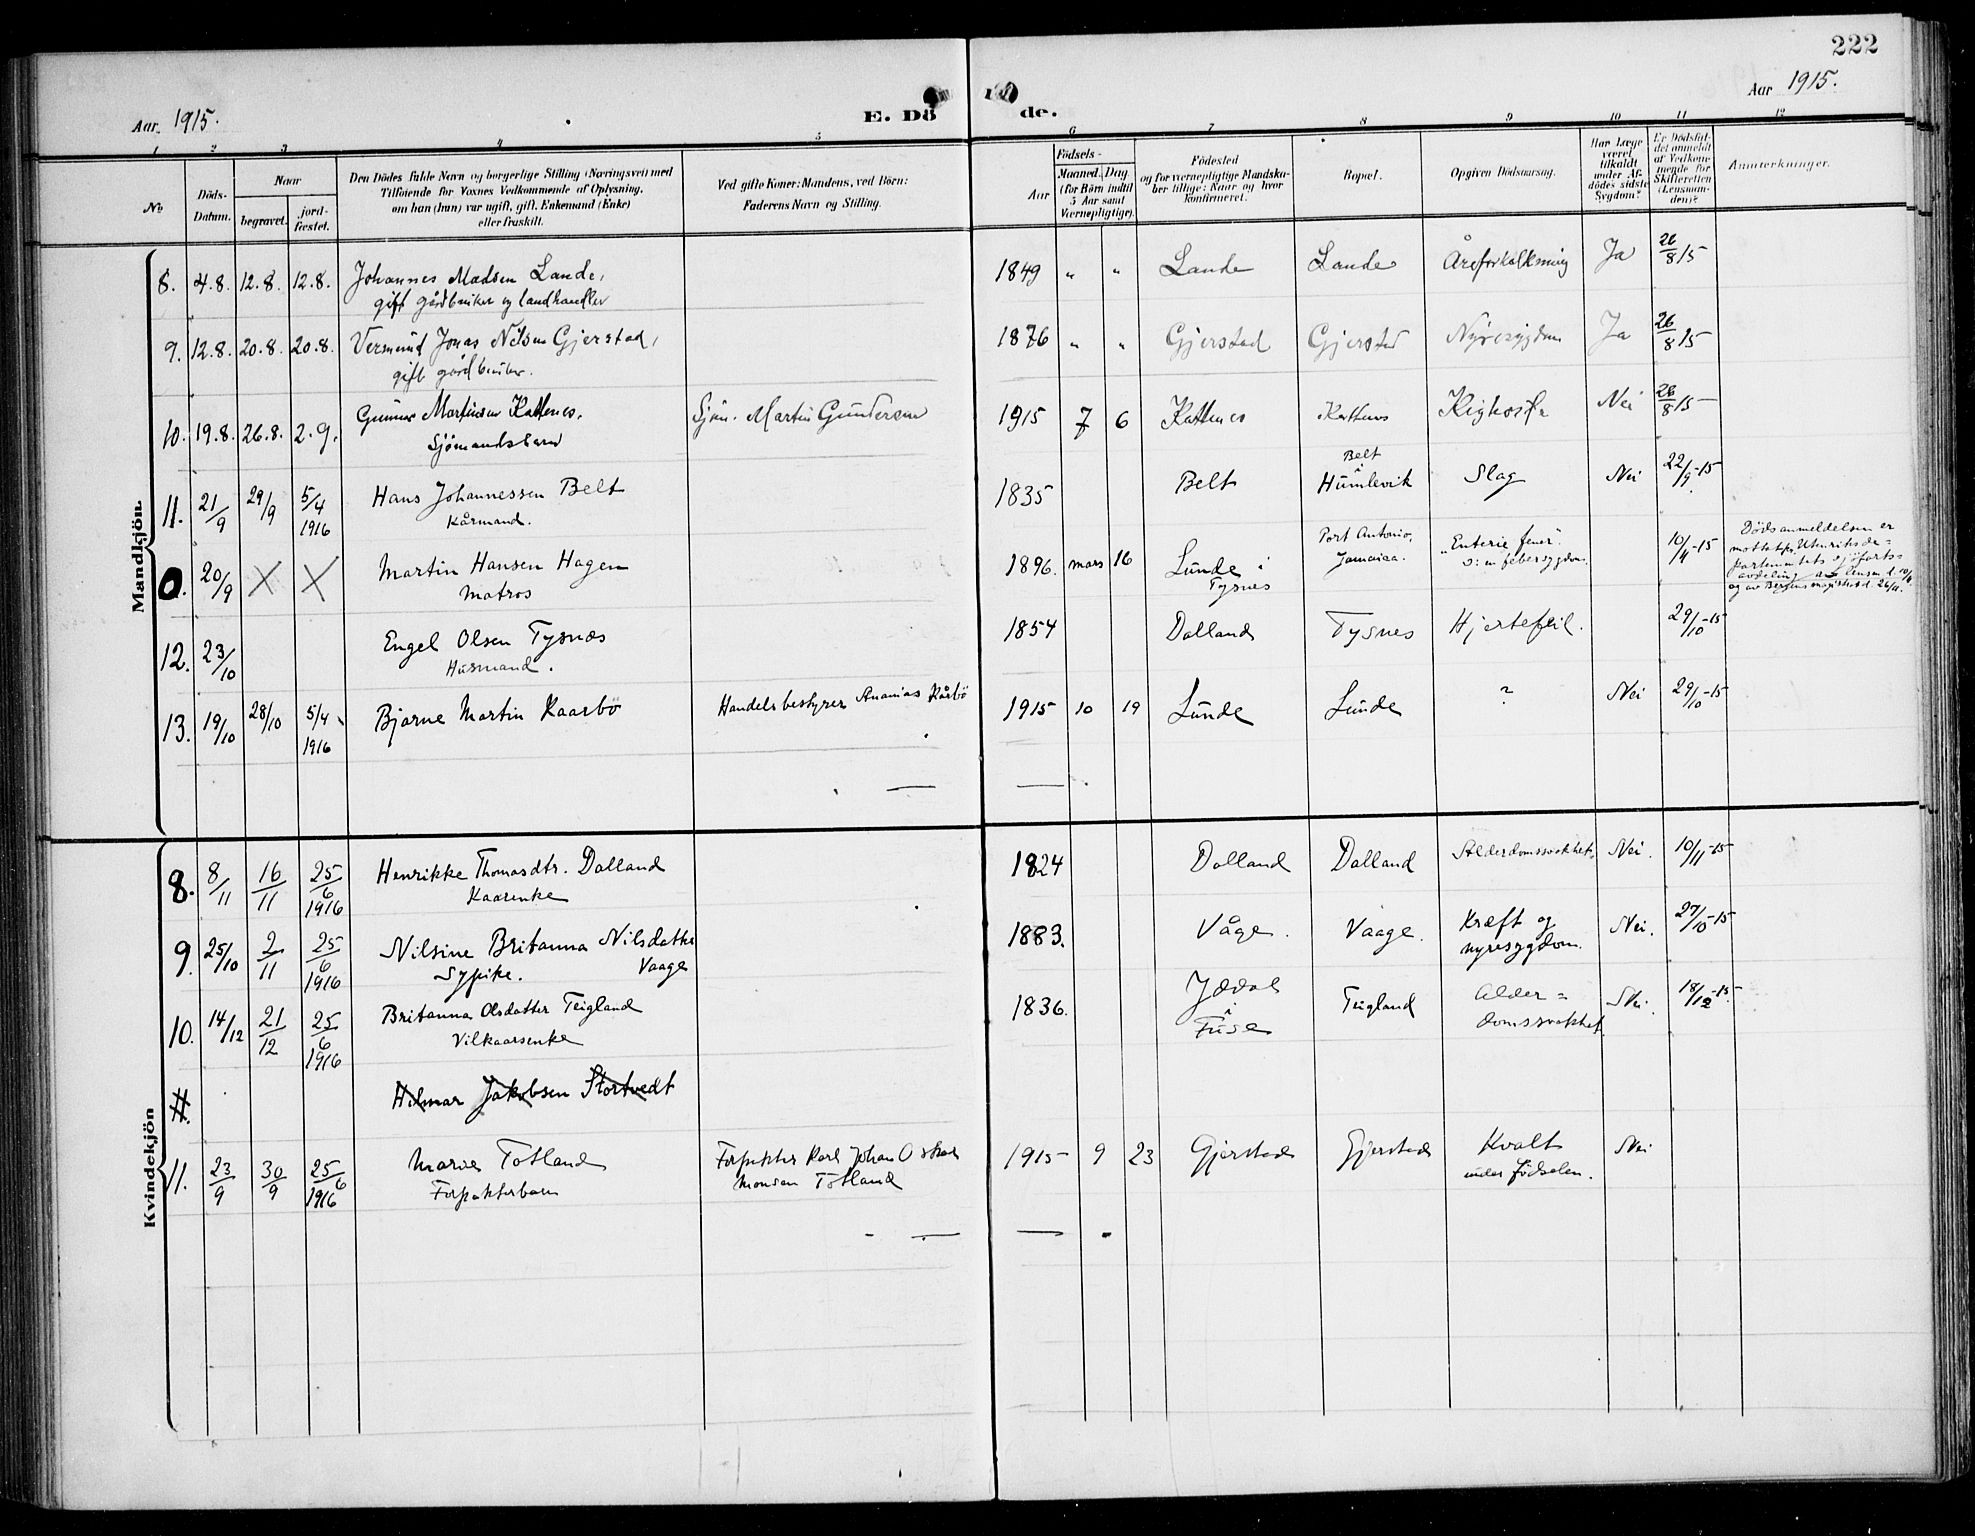 222
Aar 1915.
E. Dö de.
Aar 1915.
1 2 3 4 5 6 7 8 9 10 11 12
No
Döds-
Datum.
Naar
begravet.
jord-
fæstet.
Den Dödes fulde Navn og borgerlige Stilling (Næringsvei) med
Tilföiende for Voxnes Vedkommende af Oplysning,
om han (hun) var ugift, gift, Enkemand (Enke)
eller fraskilt.
Ved gifte Koner: Mandens, ved Börn:
Faderens Navn og Stilling.
Födsels-
Aar
Maaned. Dag.
(for Börn indtil
5 Aar samt
Værnepligtige).
Födested
og for værnepligtige Mandska-
ber tillige: Naar og hvor
konfirmeret.
Bopæl.
Opgiven Dödsaarsag.
Har Læge
været
tilkaldt
under Af-
dödes sidste
Sygdom?
Er Dödsfal-
det anmeldt
af Vedkom-
mende for
Skifteretten
(Lensman-
den)?
Anmerkninger.
Mandkjön.
8. 4.8. 12.8. 12.8. Johannes Madsen Lande, 1849 " " Lande Lande Åreforkalkning Ja 26/8 15
gift gårdbruker og landhandler
9. 12.8. 20.8. 20.8. Vermund Jonas Nilsen Gjerstad, 1876 " " Gjerstad Gjerstad Nyresygdom Ja 26/8 15
gift gårdbruker.
10. 19.8. 26.8. 2.9. Gunnar Martinsen Kattnes. Sjøm. Martin Gundersen 1915 7 6 Kattnes Kattnes Kighoste Nei 26/8 15
Sjömandsbarn
11. 21/9 29/9 5/4 1916 Hans Johannessen Belt 1835 Belt Belt i Humlevik Slag Nei 22/9-15
Kårmand.
0. 20/9 X X Martin Hansen Hagen 1896. mars 16 Lunde i Tysnes Port Antonio, Jamaica. "Enterie fever" ɔ: en febersygdom. 10/4-15
Matros
Dødsanmeldelsen er
motta fra Utenriksde=
partementets sjöfarts=
avdeling
og av Bergens magistrat d. 26/11.
12. 23/10 Engel Olsen Tysnæs 1854 Dalland Tysnes Hjertefeil. 29/10-15
Husmand.
13. 19/10 28/10 5/4 1916 Bjarne Martin Kaarbö Handelsbestyrer Ananias Kårbö 1915 10 19 Lunde Lunde ? Nei 29/10-15
Kvindekjön
8. 8/11 16/11 25/6 1916 Henrikke Thomasdtr. Dalland 1824 Dalland Dalland Alderdomssvakhet. Nei. 10/11-15
Kaarenke
9. 25/10 2/11 25/6 1916 Nilsine Britanna Nilsdatter Vaage 1883. Våge. Vaage. Kræft og nyresygdom. Nei. 27/10-15
Sypike.
10. 14/12 21/12 25/6 1916 Britanna Olsdatter Teigland 1836. Jödal i Fuse Teigland Alder= domssvakhet Nei. 18/12-15.
Vilkaarsenke
11. Hilmar Jakobsen Stortvedt
11. 23/9 30/9 25/6 1916 Marie Totland Forpakter Karl Johan Oskar Monsen Totland 1915 9 23 Gjerstad Gjerstad Kvalt under födselen. Nei
Forpakterbarn